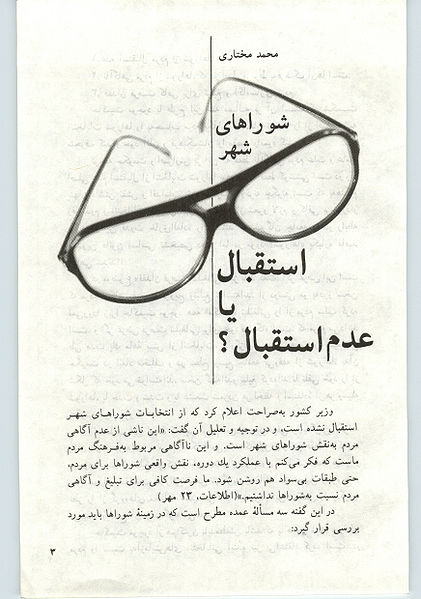 محمد مختاری
شوراهای
شهر
استقبال
یا
عدم استقبال؟
وزیر کشور به‌صراحت اعلام کرد که از انتخابات شوراهای شهر
استقبال نشده است، و در توجیه و تعلیل آن گفت: «این ناشی از عدم آگاهی
مردم به‌نقش شوراهای شهر است. و این ناآگاهی مربوط به‌فرهنگ مردم
ماست که فکر می‌کنم با عملکرد یك دوره، نقش واقعی شوراها برای مردم،
حتی طبقات بی‌سواد هم روشن شود. ما فرصت کافی برای تبلیغ و آگاهی
مردم نسبت به‌شوراها نداشتیم.»(اطلاعات، ۲۳ مهر)
در این گفته سه مسألهٔ عمده مطرح است که در زمینهٔ شوراها باید مورد
بررسی قرار گیرد:
۳